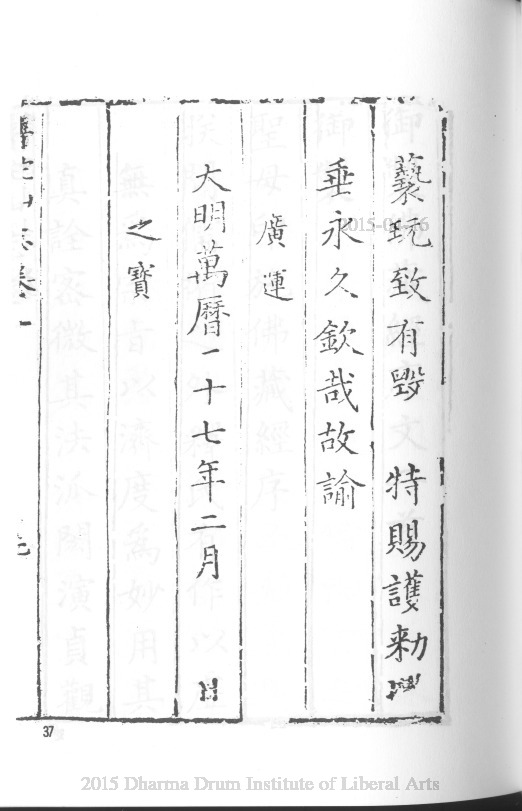 褻玩致有毀 特賜護勑
垂永久欽哉故諭
廣運
大明萬曆一十七年二月 日
之寶
普陀山志卷一
37
2015-04-16
2015 Dharma Drum Institute of Liberal Arts